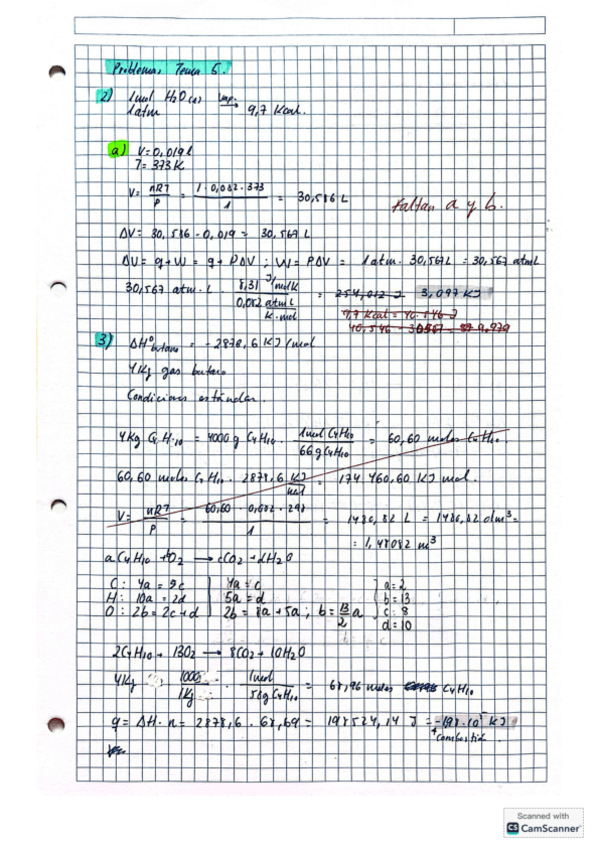 Problemas Tema 5.
2) 1mol H2O(l) vap. → 9,7 Kcal.
1atm
a) V = 0,019 l
T = 373 K
V = nRT/P = 1 · 0,082 · 373/1 = 30,586 L
Faltan a y b.
ΔV = 30,586 - 0,019 = 30,567 L
ΔU = q + W = q + PΔV ; W = PΔV = 1 atm · 30,567 L = 30,567 atm L
30,567 atm · L · 8,31 J/mol K / 0,082 atm L/K · mol = 254,012 J 3,097 KJ
9,7 Kcal = 40.546 J
3) ΔH°butano = - 2878,6 KJ/mol
4 Kg gas butano
Condiciones estándar.
4 Kg C4H10 = 4000 g C4H10 · 1 mol C4H10/66 g C4H10 = 60,60 moles C4H10.
60,60 moles C4H10 · 2878,6 KJ/mol = 174 460,60 KJ mol.
V = nRT/P = 60,60 · 0,082 · 298/1 = 1480,82 L = 1480,82 dm³ =
= 1,48082 m³
a C4H10 + O2 → cCO2 + dH2O
C: 4a = c 4a = c a = 2
H: 10a = 2d 5a = d b = 13
O: 2b = 2c + d 2b = 8a + 5a ; b = 13/2 a c = 8
d = 10
2C4H10 + 13O2 → 8CO2 + 10H2O
4Kg · 1000/1Kg · 1mol/58g C4H10 = 68,96 moles C4H10
q = ΔH · n = 2878,6 · 68,69 = 198524,14 J = -1,98 · 10⁵ KJ
combustión